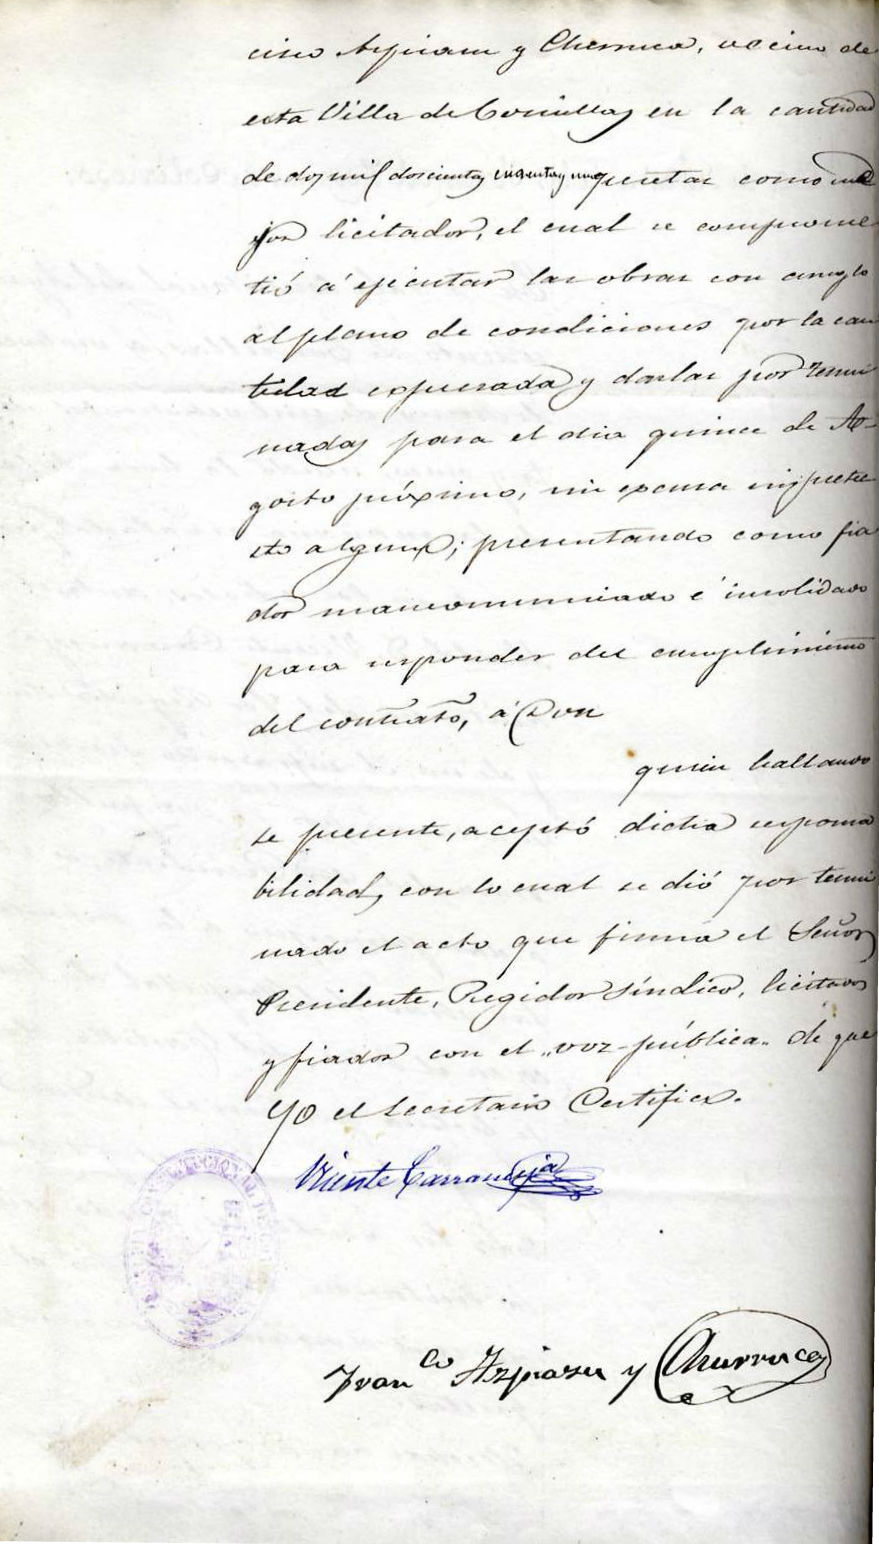 cisco Azpiazu y Churruca, vecino de
esta Villa de Comillas en la cantidad
de dos mil doscientas cuarenta y una pesetas como me
jor licitador, el cual se comprome
tió á ejecutar las obras con arreglo
al plano de condiciones por la can
tidad expresada y darlas por termi
nadas para el dia quince de A-
gosto próximo, sin excusa ni pretex
to alguno; presentando como fia
dor mancomunado é insolidado
para responder del cumplimiento
del contrato, á Don
quien hallando
se presente, aceptó dicha responsa
bilidad, con lo cual se dió por termi
nado el acto que firma el Señor
Presidente, Regidor Síndico, licitador
y fiador con el "voz-pública" de que
Yo el Secretario Certifico.
Vicente Carrandeja
Fran.co Azpiazu y Churruca